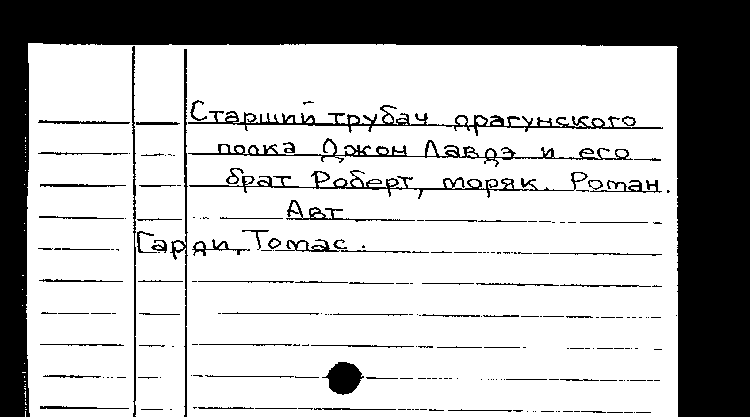 Старший трубач драгунского
полка Джон Лавдэ и его
брат Роберт, моряк. Роман.
Авт
Гарди, Томас.